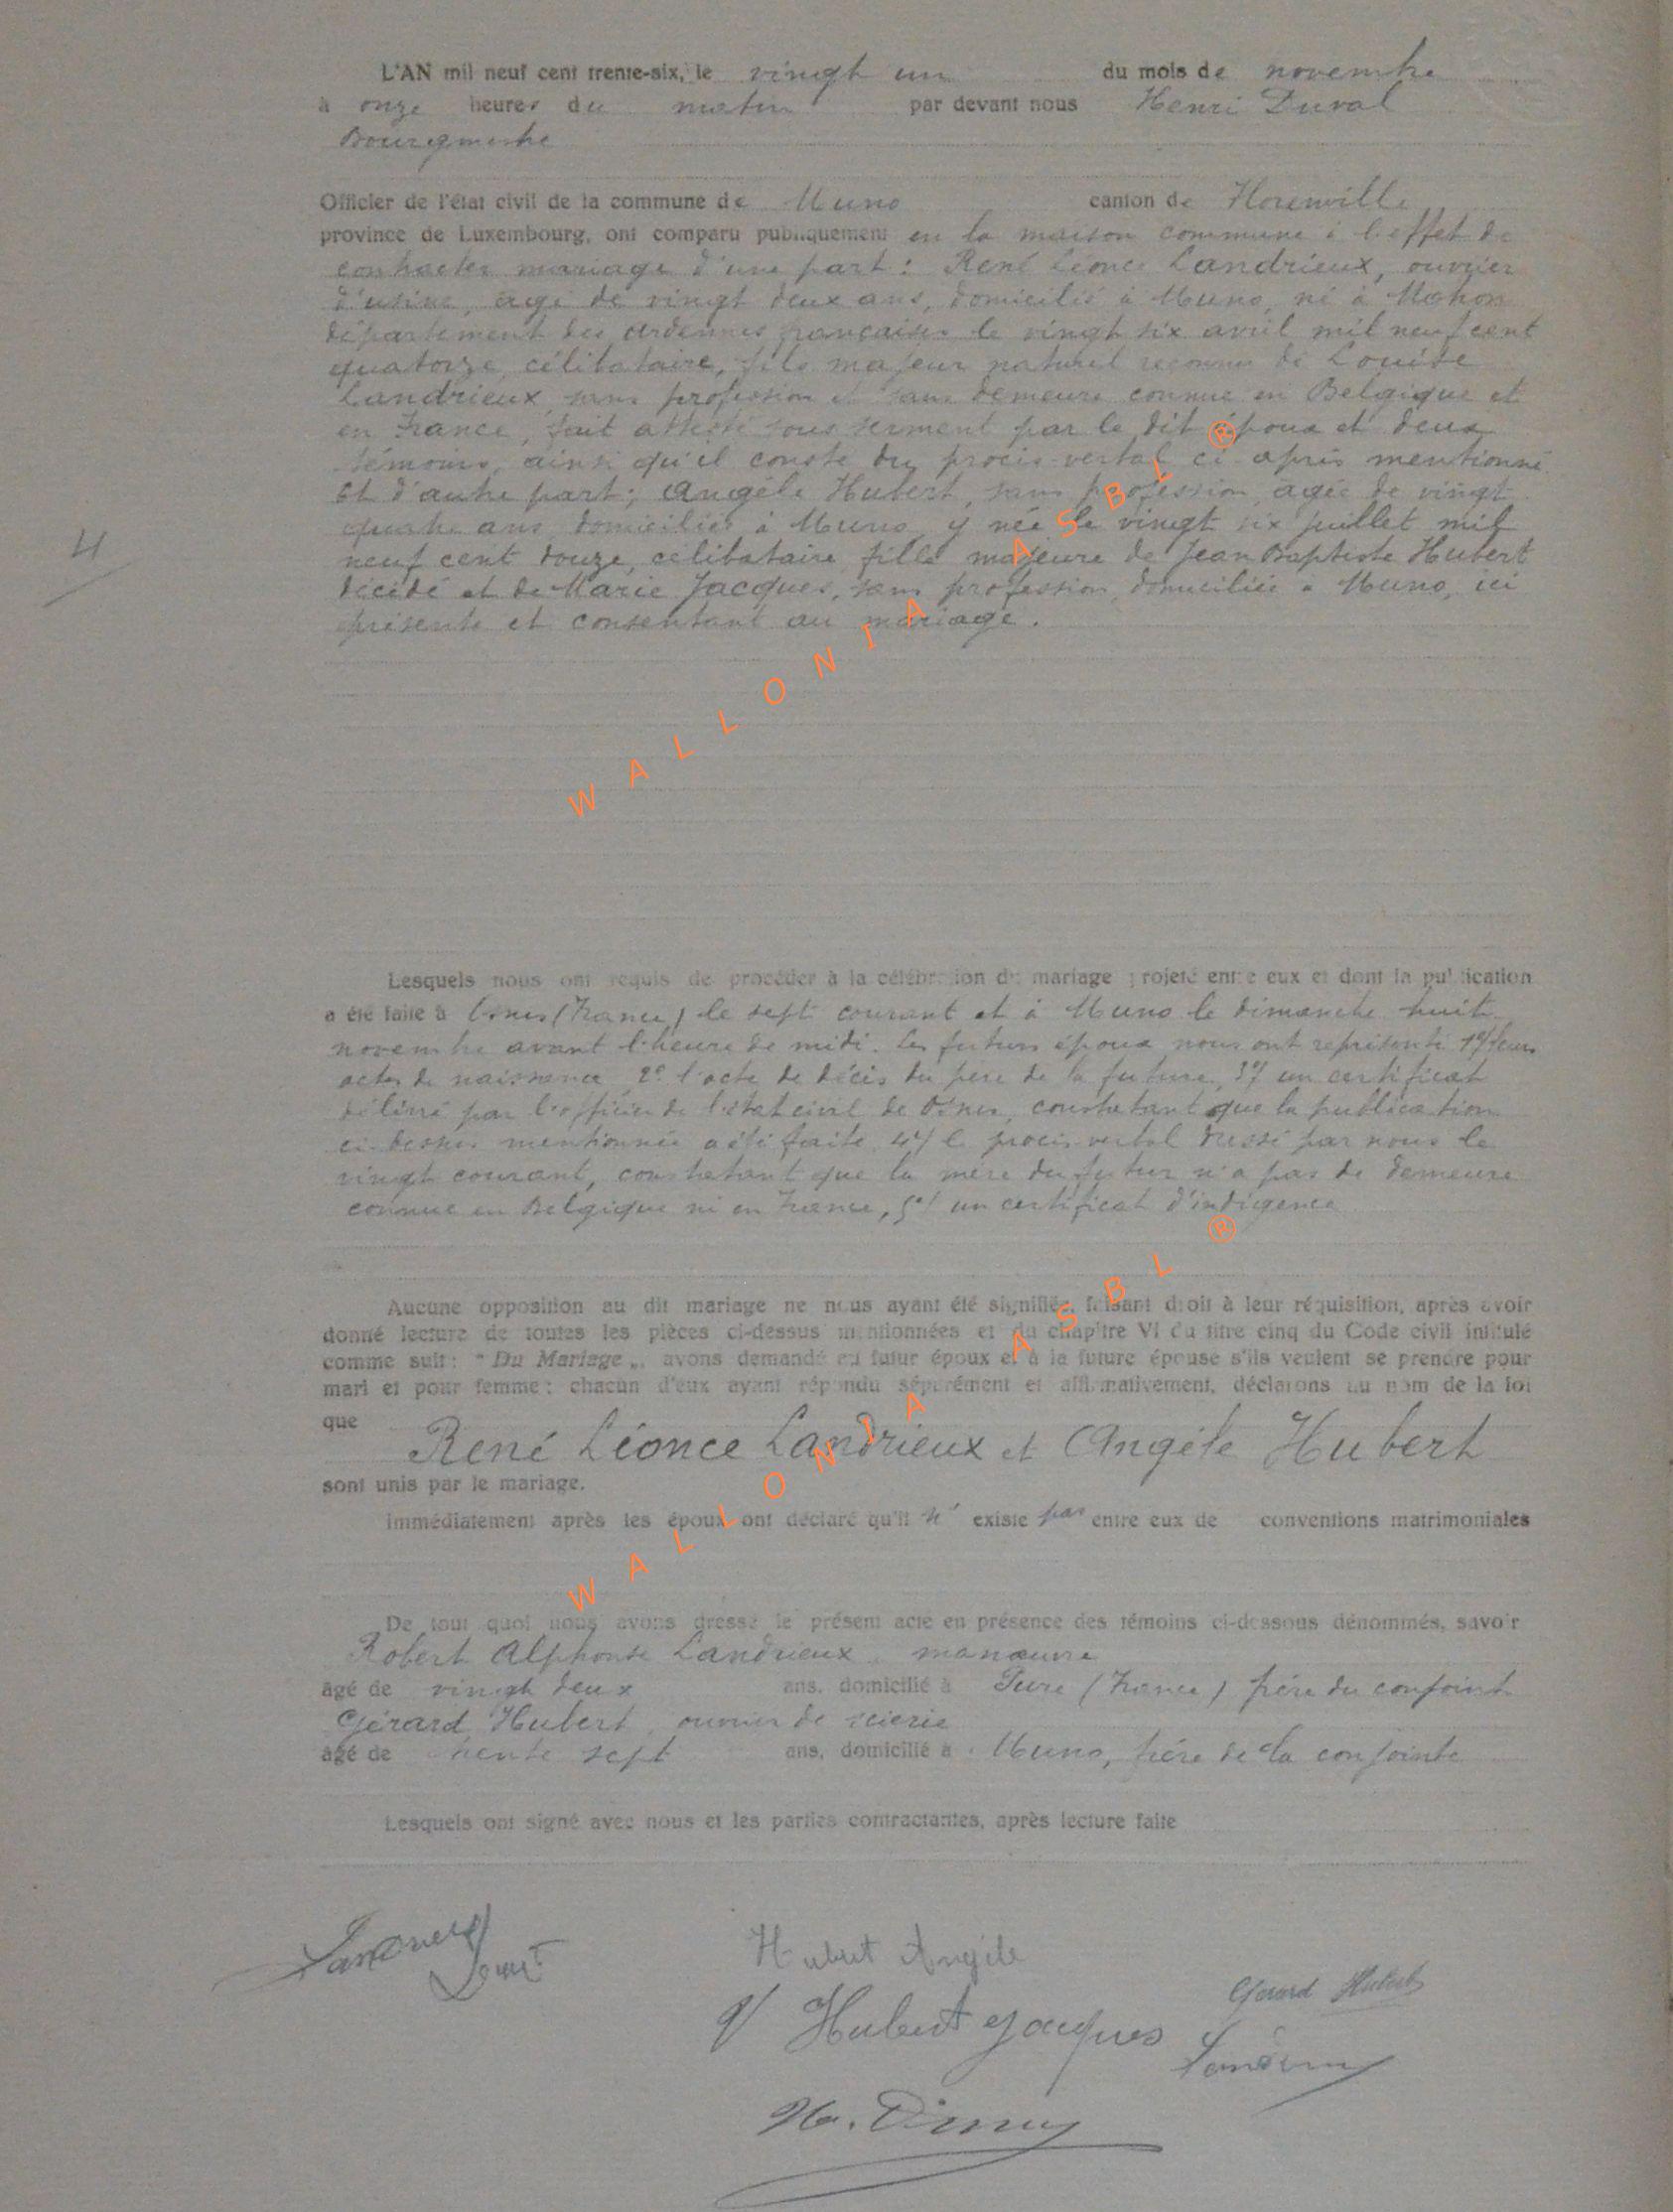 L'AN mil neuf cent trente-six, le vingt un du mois de novembre
à onze heures du matin par devant nous Henri Duval
Bourgmestre
Officier de l'état civil de la commune de Muno canton de Florenville
province de Luxembourg, ont comparu publiquement en la maison commune à l'effet de
contracter mariage d'une part : René Léonce Landrieux, ouvrier
d'usine, âgé de vingt deux ans, domicilié à Muno, né à Mohon
département des ardennes françaises le vingt six avril mil neuf cent
quatorze, célibataire, fils majeur naturel reconnu de Louise
Landrieux, sans profession et sans demeure connue en Belgique et
en France, fait attesté sous serment par le dit époux et deux
témoins, ainsi qu'il conste du procès-verbal ci-après mentionné
et d'autre part ; Angèle Hubert, sans profession, âgée de vingt
quatre ans domiciliée à Muno, y née le vingt six juillet mil
neuf cent douze, célibataire fille majeure de Jean Baptiste Hubert
décédé et de Marie Jacques, sans profession, domiciliée à Muno, ici
présente et consentant au mariage.
4
Lesquels nous ont requis de procéder à la célébration du mariage projeté entre eux et dont la publication
a été faite à (France) le sept courant et à Muno le dimanche huit
novembre avant l'heure de midi. Les futurs époux nous ont représenté 1°/ leurs
actes de naissance 2° l'acte de décès du père de la future, 3°/ un certificat
délivré par l'officier de l'état civil de constatant que la publication
ci-dessus mentionnée a été faite 4°/ le procès-verbal dressé par nous le
vingt courant, constatant que la mère du futur n'a pas de demeure
connue en Belgique ni en France, 5°/ un certificat d'indigence
Aucune opposition au dit mariage ne nous ayant été signifiée, faisant droit à leur réquisition, après avoir
donné lecture de toutes les pièces ci-dessus mentionnées et du chapitre VI du titre cinq du Code civil intitulé
comme suit : " Du Mariage „, avons demandé au futur époux et à la future épouse s'ils veulent se prendre pour
mari et pour femme ; chacun d'eux ayant répondu séparément et affirmativement, déclarons au nom de la loi
que René Léonce Landrieux et Angèle Hubert
sont unis par le mariage.
Immédiatement après les époux ont déclaré qu'il n' existe pas entre eux de conventions matrimoniales
De tout quoi nous avons dressé le présent acte en présence des témoins ci-dessous dénommés, savoir
Robert Alphonse Landrieux manœuvre
âgé de vingt deux ans, domicilié à (France) frère du conjoint
Gérard Hubert, ouvrier de scierie
âgé de trente sept ans, domicilié à Muno, frère de la conjointe
Lesquels ont signé avec nous et les parties contractantes, après lecture faite
Hubert Angèle
Gérard Hubert
Hubert Jacques
WALLONIA ASBL ®
WALLONIA ASBL ®